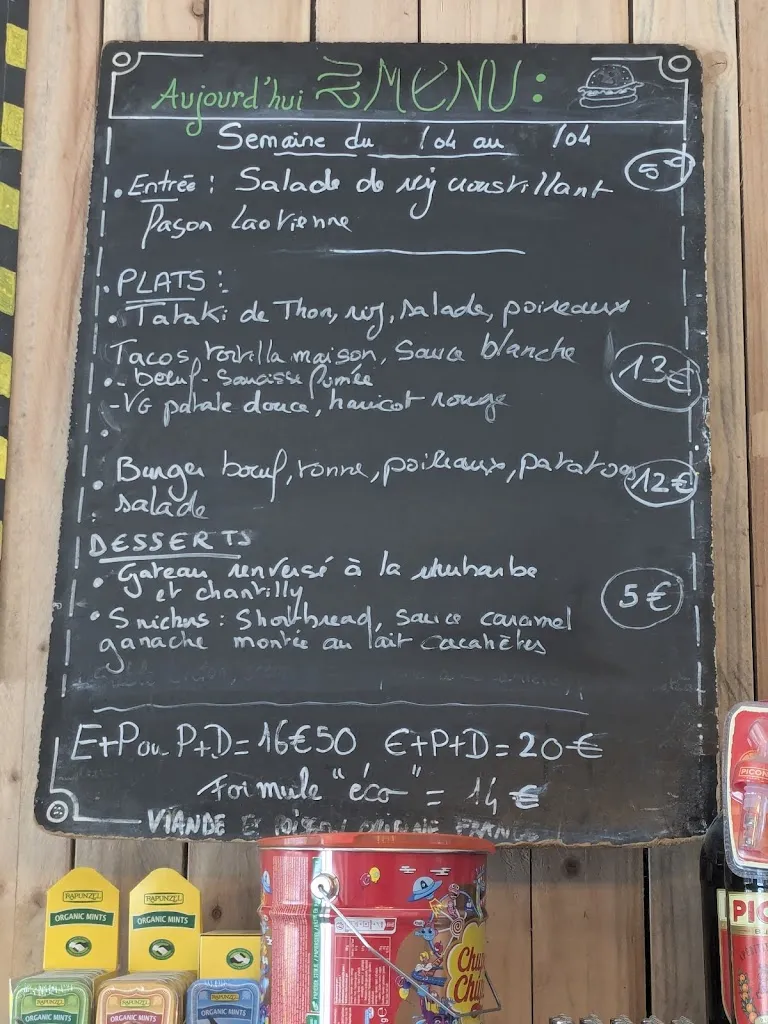 Aujourd'hui MENU :
Semaine du /04 au /04
• Entrée : Salade de riz croustillant
façon Laotienne
5€
• PLATS :
• Tataki de Thon, riz, salade, poireaux
Tacos, tortilla maison, Sauce blanche
- boeuf - Saucisse fumée
- VG patate douce, haricot rouge
13€
• Burger boeuf, tomme, poireaux, patatoes
salade
12€
DESSERTS
• Gateau renversé à la rhubarbe
et chantilly
5€
• Snickers : Shortbread, sauce caramel
ganache montée au lait cacahètes
E+P ou P+D = 16€50 E+P+D = 20€
Formule "éco" = 14€
VIANDE ET POISSON ORIGINE FRANCE
RAPUNZEL
ORGANIC MINTS
RAPUNZEL
ORGANIC MINTS
ORGANIC MINTS
ORGANIC MINTS
ORGANIC MINTS
Chupa
Chups
PICON
PIC